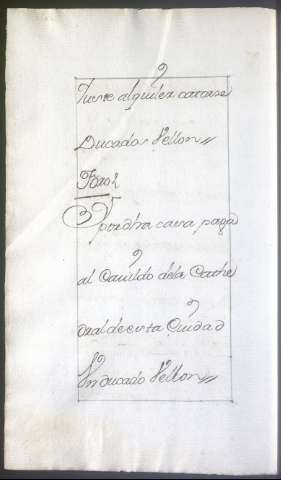 fuese alquiler catorse
Ducados Vellon
Foro
por dha casa paga
al Cavildo dela Cathe
dral de esta Ciudad
Un ducado Vellon